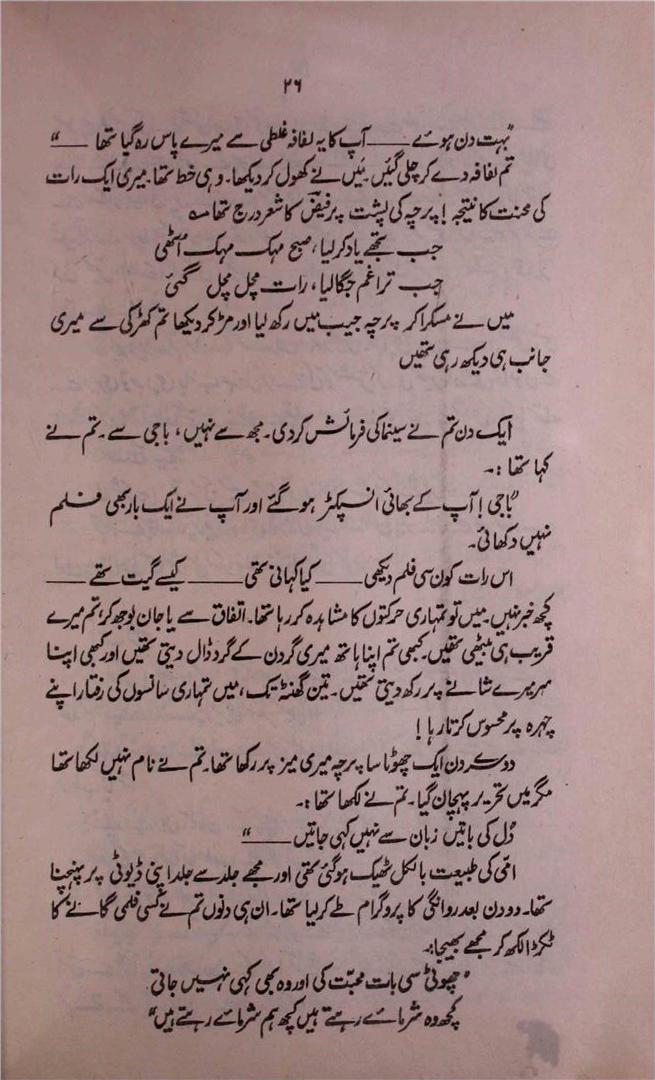 ۲۶
"بہت دن ہوئے ـــــ آپ کا یہ لفافہ غلطی سے میرے پاس رہ گیا تھا ـــــ"
تم لفافہ دے کر چلی گئیں۔ میں نے کھول کر دیکھا۔ وہی خط تھا۔ میری ایک رات
کی محنت کا نتیجہ! پرچہ کی پشت پر فیضؔ کا شعر درج تھا ؎
جب تجھے یاد کر لیا، صبح مہک مہک اٹھی
جب ترا غم جگا لیا، رات مچل مچل گئی
میں نے مسکرا کر پرچہ جیب میں رکھ لیا اور مڑ کر دیکھا تم کھڑکی سے میری
جانب ہی دیکھ رہی تھیں
ایک دن تم نے سینما کی فرمائش کر دی۔ مجھ سے نہیں، باجی سے۔ تم نے
کہا تھا :۔
"باجی! آپ کے بھائی انسپکٹر ہو گئے اور آپ نے ایک بار بھی فلم
نہیں دکھائی۔
اس رات کون سی فلم دیکھی ـــــ کیا کہانی تھی ـــــ کیسے گیت تھے ـــــ
کچھ خبر نہیں۔ میں تو تمہاری حرکتوں کا مشاہدہ کر رہا تھا۔ اتفاق سے یا جان بوجھ کر، تم میرے
قریب ہی بیٹھی تھیں۔ کبھی تم اپنا ہاتھ میری گردن کے گرد ڈال دیتی تھیں اور کبھی اپنا
سر میرے شانے پر رکھ دیتی تھیں۔ تین گھنٹہ تک، میں تمہاری سانسوں کی رفتار اپنے
چہرہ پر محسوس کرتا رہا!
دوسرے دن ایک چھوٹا سا پرچہ میری میز پر رکھا تھا۔ تم نے نام نہیں لکھا تھا
مگر میں تحریر پہچان گیا۔ تم نے لکھا تھا :۔
"دل کی باتیں زبان سے نہیں کہی جاتیں ـــــ"
امی کی طبیعت بالکل ٹھیک ہو گئی تھی اور مجھے جلد سے جلد اپنی ڈیوٹی پر پہنچنا
تھا۔ دو دن بعد روانگی کا پروگرام طے کر لیا تھا۔ ان ہی دنوں تم نے کسی فلمی گانے کا
ٹکڑا لکھ کر مجھے بھیجا:۔
"چھوٹی سی بات محبت کی اور وہ بھی کہی نہیں جاتی
کچھ وہ شرمائے رہتے ہیں کچھ ہم شرمائے رہتے ہیں"